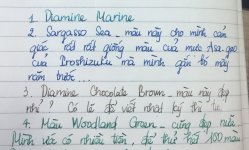 1. Diamine Marine
2. Sargasso Sea - màu này cho mình cảm
giác rất rất giống màu của mực Asa-gao
của Iroshizuku mà mình gửi từ mấy
năm trước...
3. Diamine Chocolate Brown - màu này đẹp
nhỉ? Có lẽ để viết nhật ký thì
4. Màu Woodland Green - cũng đẹp nữa.
Mình vừa có nhiều tiền, để thử hết 100 màu